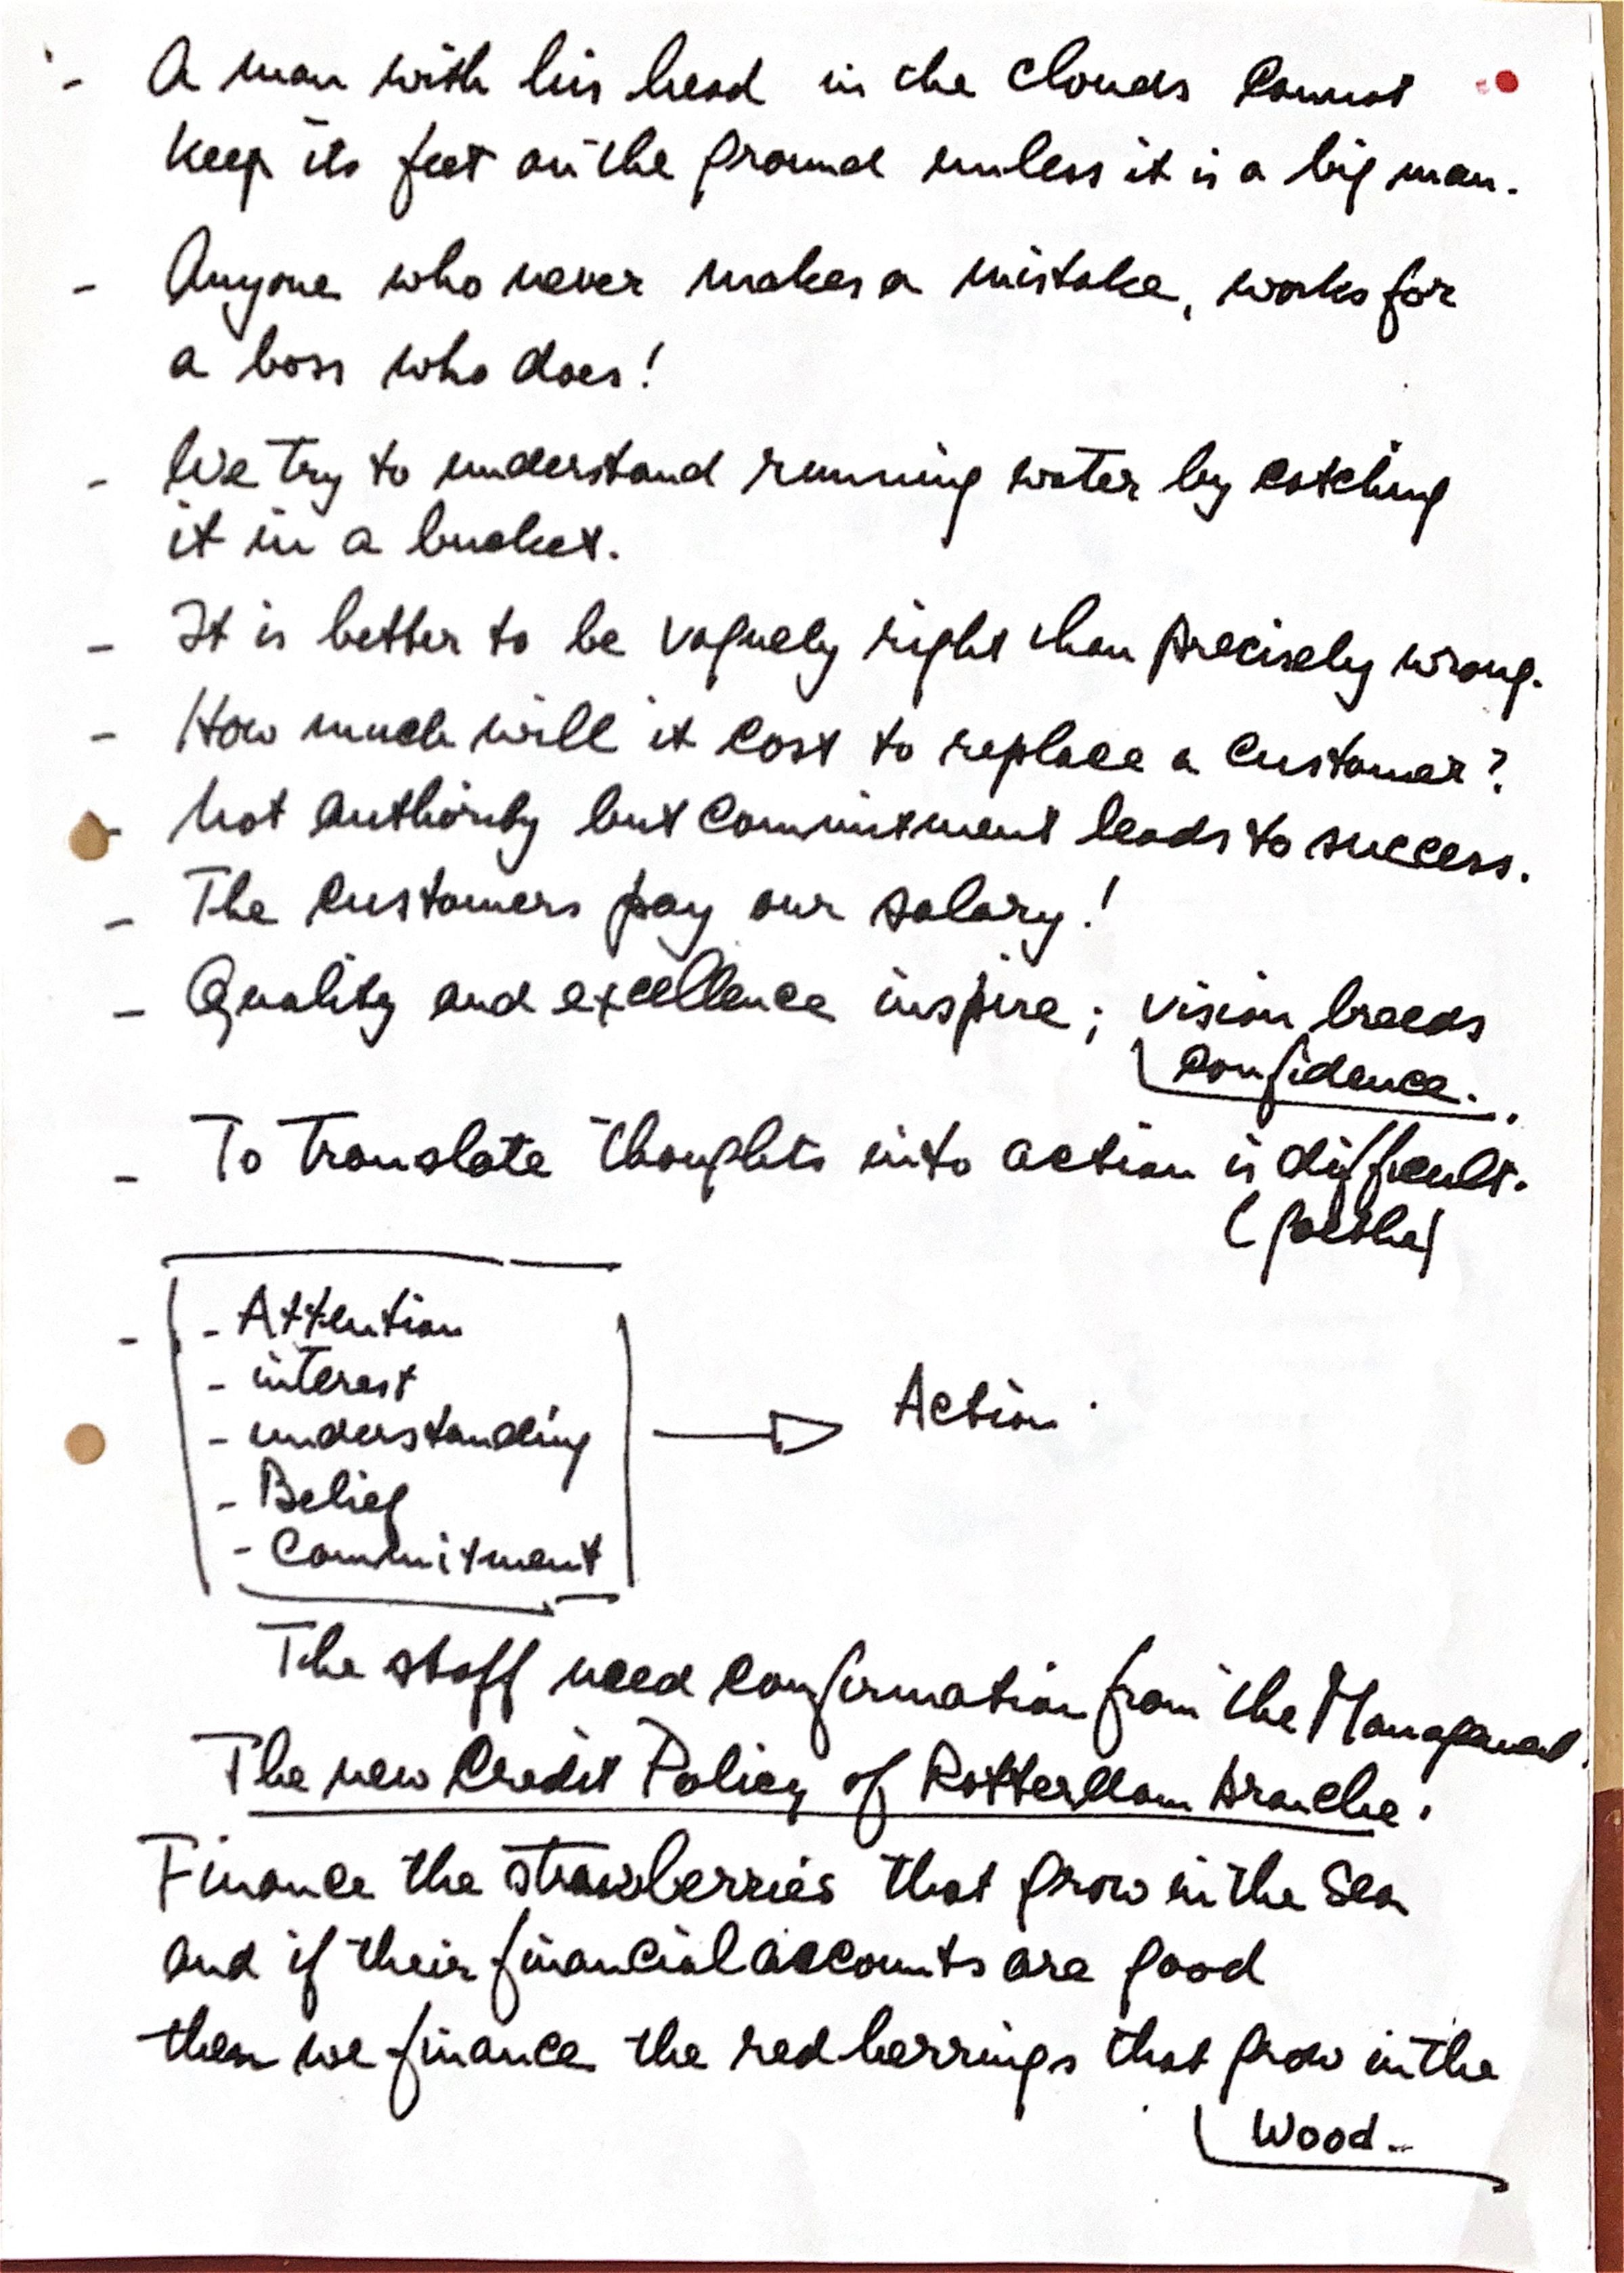 - A man with his head in the clouds cannot
keep its feet on the ground unless it is a big man.
- Anyone who never makes a mistake, works for
a boss who does!
- We try to understand running water by catching
it in a bucket.
- It is better to be vaguely right than precisely wrong.
- How much will it cost to replace a customer?
- Not authority but commitment leads to success.
- The customers pay our salary!
- Quality and excellence inspire; vision breeds
confidence.
- To translate thoughts into action is difficult.
(Goethe)
- - Attention
- interest
- understanding
- Belief
- Commitment
Action.
The staff need confirmation from the Management.
The new Credit Policy of Rotterdam branche.
Finance the strawberries that grow in the Sea
and if their financial accounts are good
then we finance the red herrings that grow in the
Wood.